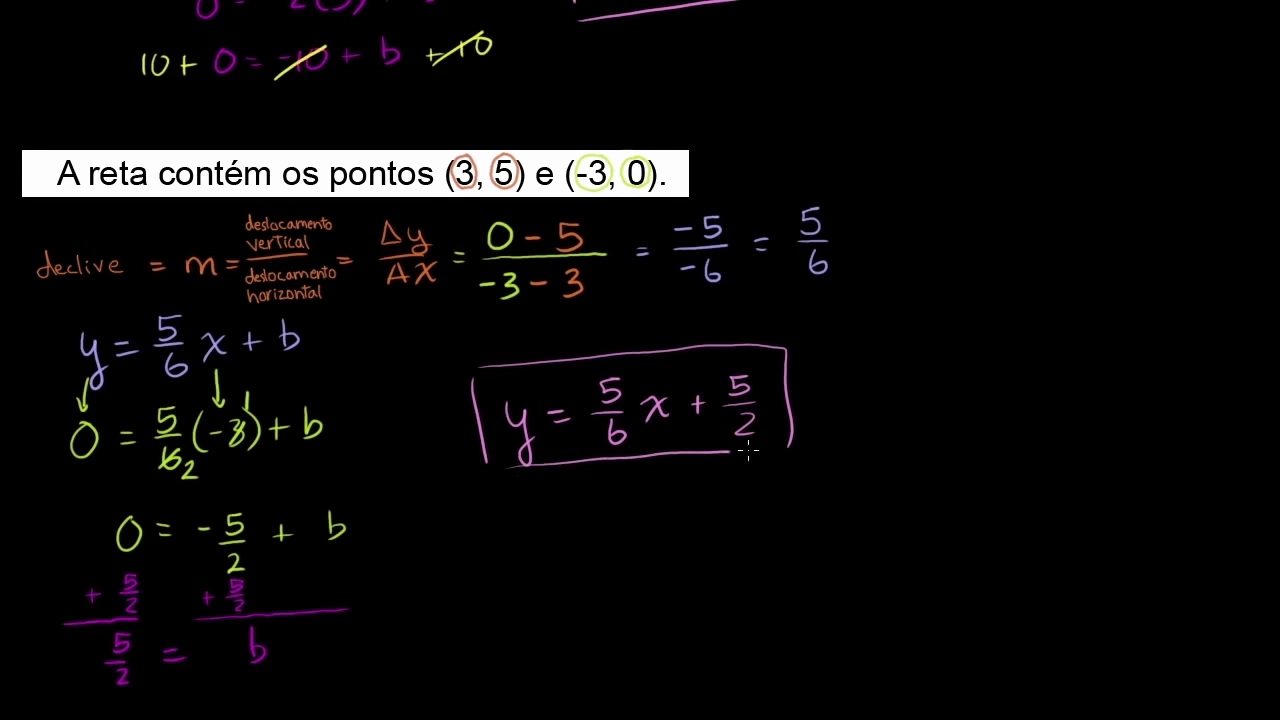 10 + 0 = -10 + b + 10
A reta contém os pontos (3, 5) e (-3, 0).
declive = m = deslocamento vertical / deslocamento horizontal = Δy / Δx = 0 - 5 / -3 - 3 = -5 / -6 = 5 / 6
y = 5/6 x + b
0 = 5/6 2 (-3) 1 + b
y = 5/6 x + 5/2
0 = -5/2 + b
+ 5/2 + 5/2
5/2 = b